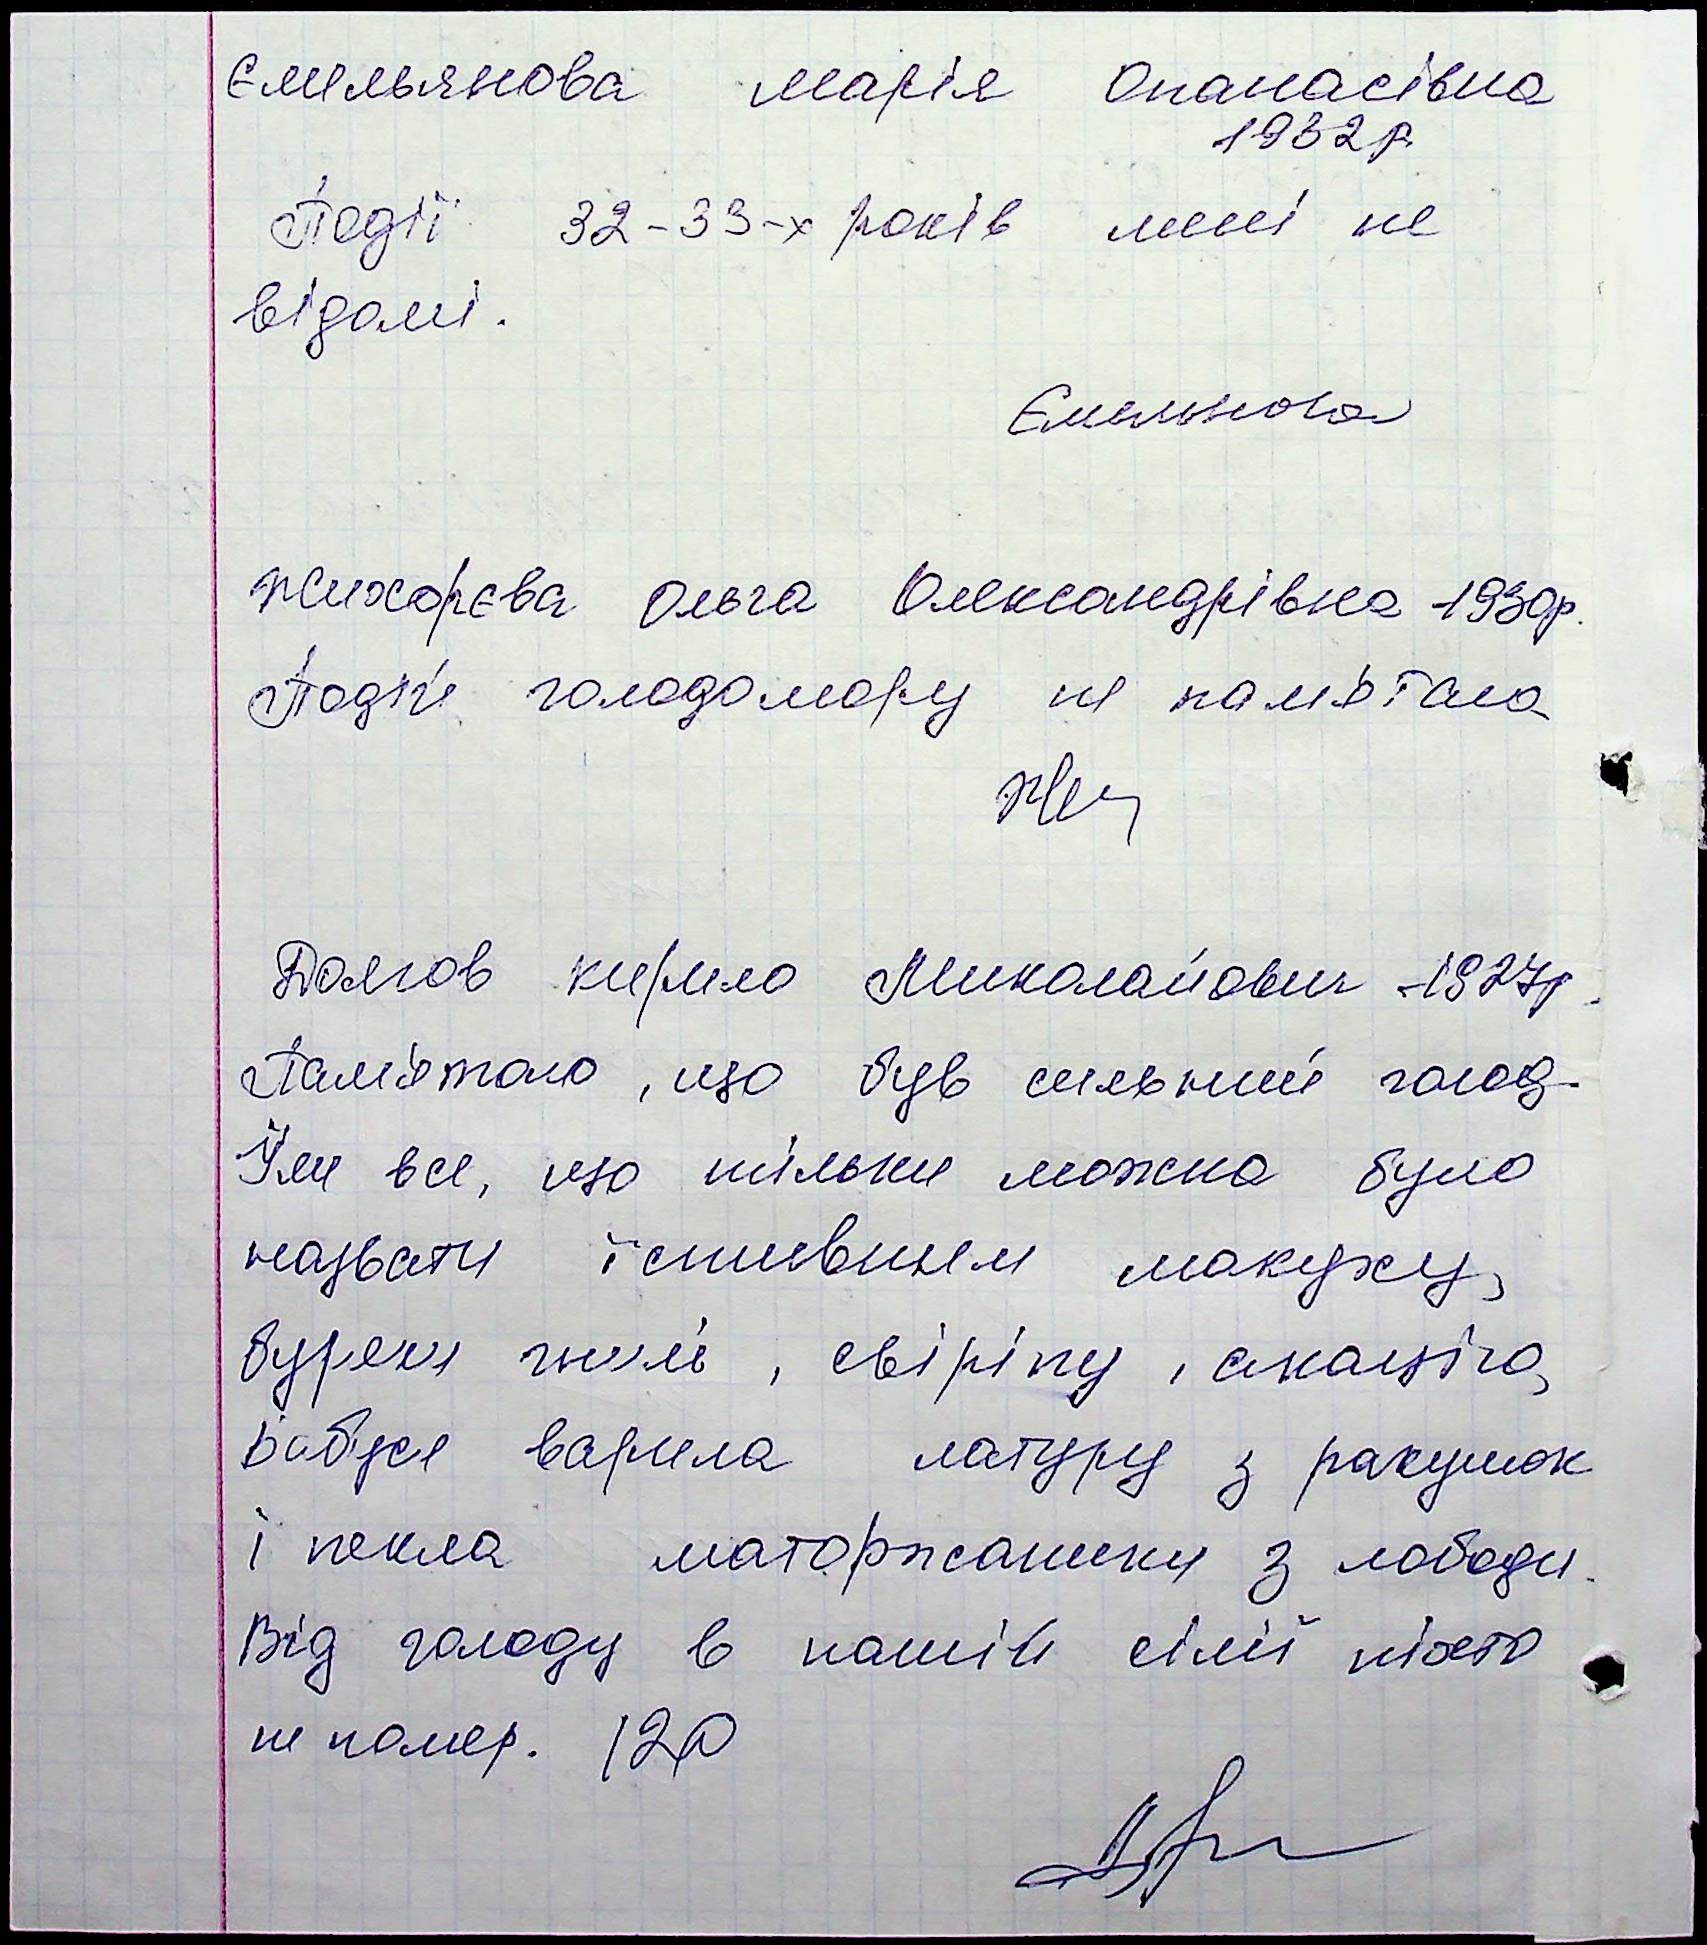 Ємельянова Марія Опанасівна
1932р
Події 32-33-х років мені не
відомі.
Ємельянова
Жихорєва Ольга Олександрівна 1930р.
Подій голодомору не пам'ятаю
Долгов Кирило Миколайович -1927р.
Пам'ятаю, що був сильний голод.
Їли все, що тільки можна було
назвати їстивним макуху,
буряки гнилі, свіріпу, акацію,
Бабуся варила латуру з ракушок
і пекла маторжаники з лободи.
Від голоду в нашій сілії ніхто
не помер.